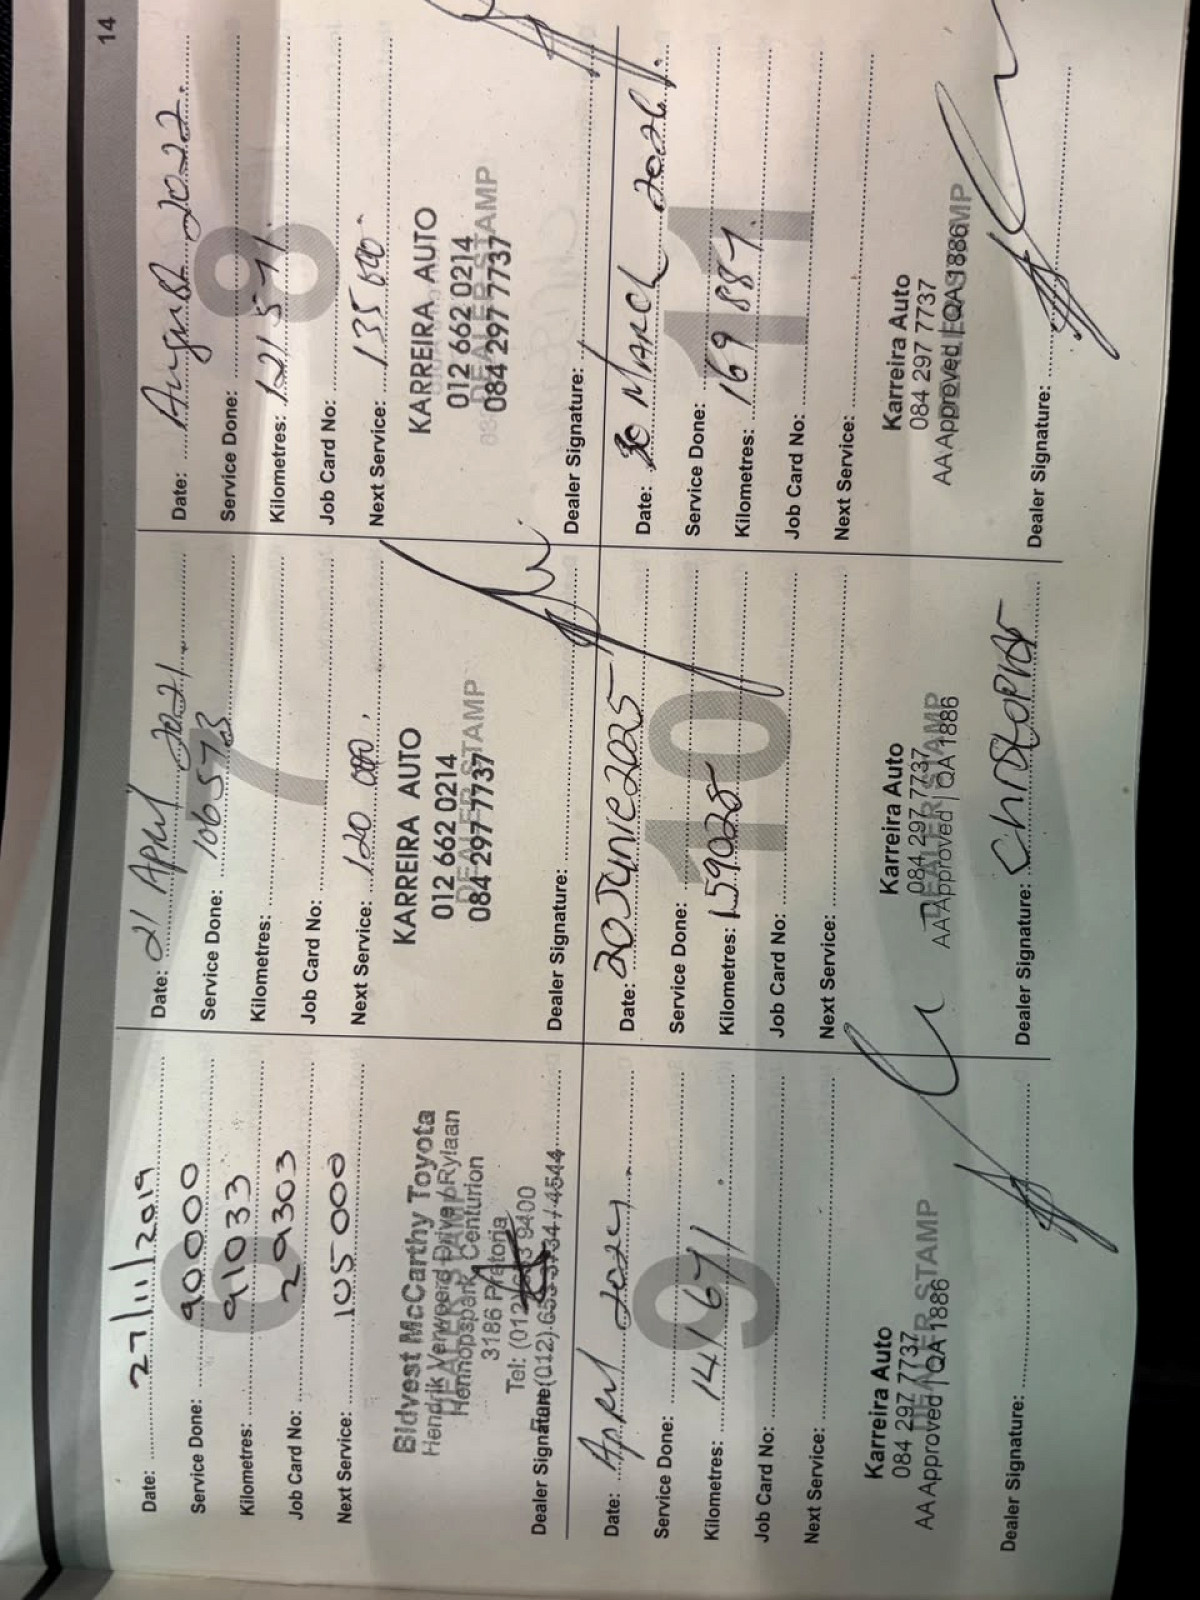 14
Date: 27/11/2019
Service Done: 90000
Kilometres: 91033
Job Card No: 29303
Next Service: 105000
6
Bidvest McCarthy Toyota
Hendrik Verwoerd Drive / Rylaan
Hennopspark, Centurion
3186 Pretoria
DEALER STAMP
Dealer Signature:
Date: 21 April 2021
Service Done: 106573
Kilometres:
Job Card No:
Next Service: 120 000.
7
KARREIRA AUTO
012 662 0214
DEALER STAMP
084 297 7737
Dealer Signature:
Date: August 2022.
Service Done:
Kilometres: 121571.
Job Card No:
Next Service: 135 000
8
KARREIRA AUTO
012 662 0214
DEALER STAMP
084 297 7737
Dealer Signature:
Date: April 2024.
Service Done:
Kilometres: 141671.
Job Card No:
Next Service:
9
Karreira Auto
084 297 7737
DEALER STAMP
AA Approved | QA 1886
Dealer Signature:
Date: 20 June 2025
Service Done:
Kilometres: 159025
Job Card No:
Next Service:
10
Karreira Auto
084 297 7737
DEALER STAMP
AA Approved | QA 1886
Dealer Signature: Christopher
Date: 30 March 2026.
Service Done:
Kilometres: 169 887.
Job Card No:
Next Service:
11
Karreira Auto
084 297 7737
AA Approved | QA 1886
DEALER STAMP
Dealer Signature: